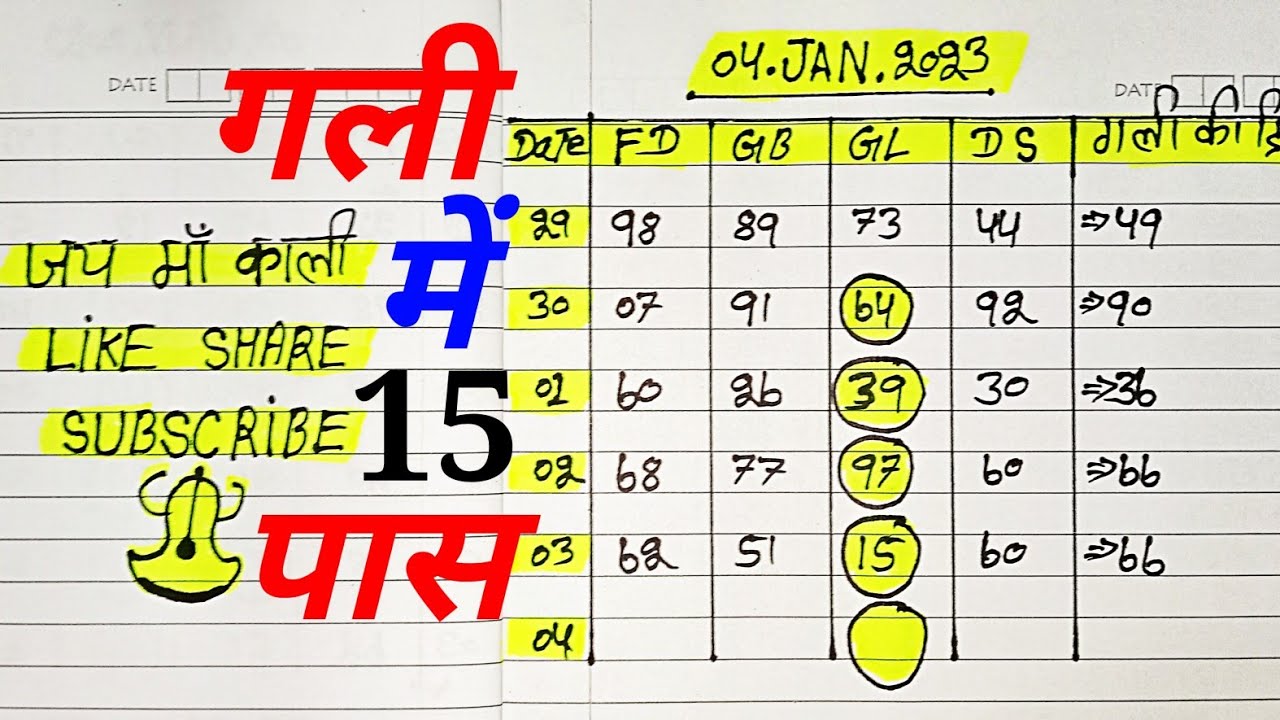 गली
में
15
पास
DATE
जय माँ काली
LIKE SHARE
SUBSCRIBE
04.JAN.2023
DATE
Date FD GB GL DS गली की
29 98 89 73 44 ⇒49
30 07 91 64 92 ⇒90
01 60 26 39 30 ⇒36
02 68 77 97 60 ⇒66
03 62 51 15 60 ⇒66
04